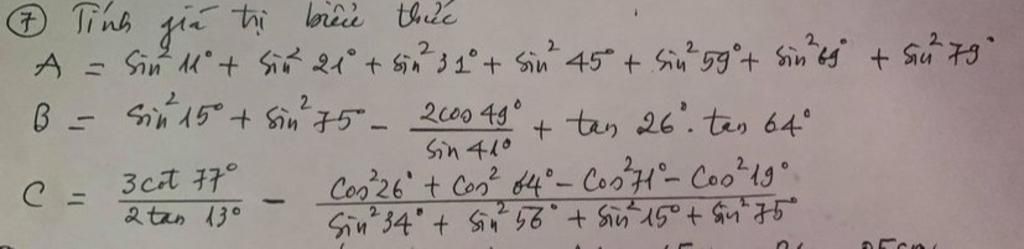 ⑦ Tính giá trị biểu thức
A = sin² 11° + sin² 21° + sin² 31° + sin² 45° + sin² 59° + sin² 69° + sin² 79°
B = sin² 15° + sin² 75° - 2cos 49° / sin 41° + tan 26° . tan 64°
C = 3cot 77° / 2tan 13° - (cos² 26° + cos² 64° - cos² 71° - cos² 19°) / (sin² 34° + sin² 56° + sin² 15° + sin² 75°)